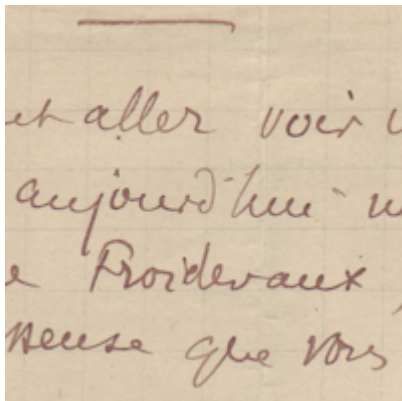 et aller voir
aujourd'hui
Froidevaux,
que vous